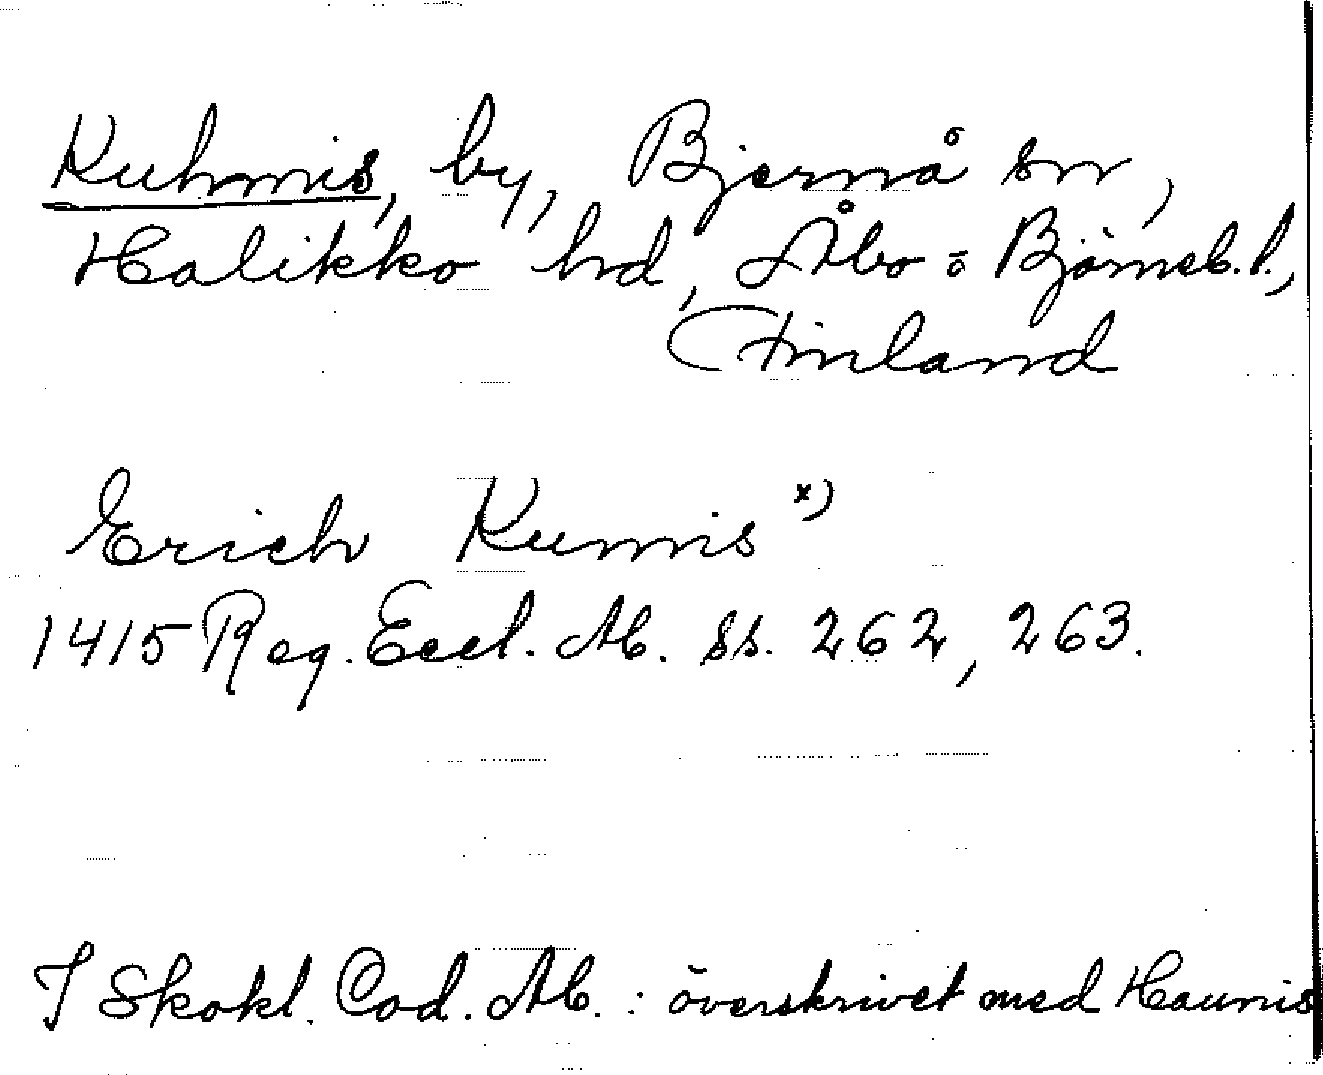 Kuhmis, by, Bjernå sn,
Halikko hd, Åbo o Björneb. l.,
Finland
Erich Kumis x)
1415 Reg. Eccl. Ab. ss. 262, 263.
I Skokl. Cod. Ab. : överskrivet med Haunis